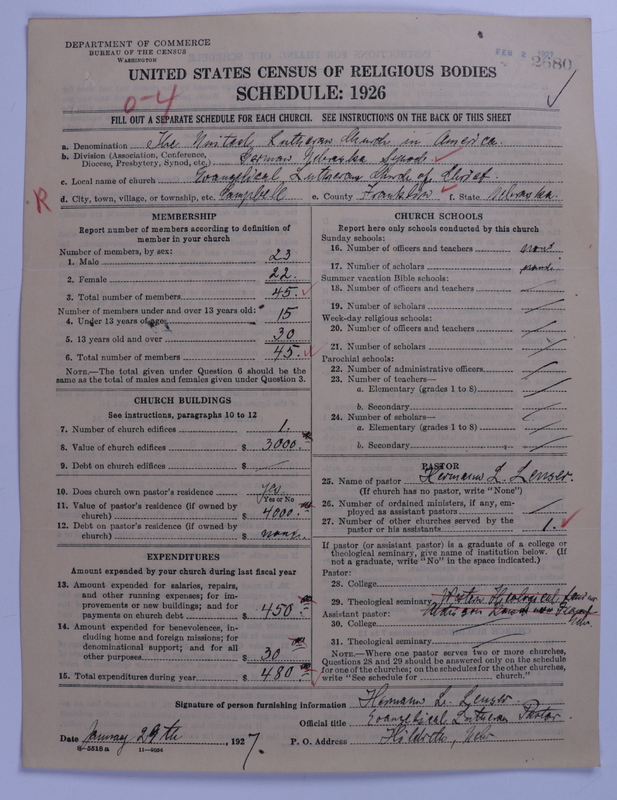 DEPARTMENT OF COMMERCE
BUREAU OF THE CENSUS
WASHINGTON
FEB 2 1927
2680
UNITED STATES CENSUS OF RELIGIOUS BODIES
SCHEDULE: 1926
0-4
FILL OUT A SEPARATE SCHEDULE FOR EACH CHURCH. SEE INSTRUCTIONS ON THE BACK OF THIS SHEET
a. Denomination The United Lutheran Church in America.
b. Division (Association, Conference, Diocese, Presbytery, Synod, etc.) German Nebraska Synod.
c. Local name of church Evangelical Lutheran Church of Christ.
R
d. City, town, village, or township, etc. Campbell e. County Franklin f. State Nebraska.
MEMBERSHIP
Report number of members according to definition of
member in your church
Number of members, by sex:
1. Male 23
2. Female 22.
3. Total number of members 45.
Number of members under and over 13 years old:
4. Under 13 years of age 15
5. 13 years old and over 30
6. Total number of members 45.
NOTE.—The total given under Question 6 should be the
same as the total of males and females given under Question 3.
CHURCH BUILDINGS
See instructions, paragraphs 10 to 12
7. Number of church edifices 1.
8. Value of church edifices $ 3000.
9. Debt on church edifices $
10. Does church own pastor's residence yes.
Yes or No
11. Value of pastor's residence (if owned by
church) $ 4000.
12. Debt on pastor's residence (if owned by
church) $ none.
EXPENDITURES
Amount expended by your church during last fiscal year
13. Amount expended for salaries, repairs,
and other running expenses; for im-
provements or new buildings; and for
payments on church debt $ 450.
14. Amount expended for benevolences, in-
cluding home and foreign missions; for
denominational support; and for all
other purposes $ 30
15. Total expenditures during year $ 480
CHURCH SCHOOLS
Report here only schools conducted by this church
Sunday schools:
16. Number of officers and teachers
17. Number of scholars
Summer vacation Bible schools:
18. Number of officers and teachers
19. Number of scholars
Week-day religious schools:
20. Number of officers and teachers
21. Number of scholars
Parochial schools:
22. Number of administrative officers
23. Number of teachers—
a. Elementary (grades 1 to 8)
b. Secondary
24. Number of scholars—
a. Elementary (grades 1 to 8)
b. Secondary
PASTOR
25. Name of pastor Hermann L. Lenser.
(If church has no pastor, write "None")
26. Number of ordained ministers, if any, em-
ployed as assistant pastors
27. Number of other churches served by the
pastor or his assistants 1.
If pastor (or assistant pastor) is a graduate of a college or
theological seminary, give name of institution below. (If
not a graduate, write "No" in the space indicated.)
Pastor:
28. College
29. Theological seminary Western Theological
Assistant pastor:
30. College
31. Theological seminary
NOTE.—Where one pastor serves two or more churches,
Questions 28 and 29 should be answered only on the schedule
for one of the churches; on the schedules for the other churches,
write "See schedule for church."
Signature of person furnishing information Hermann L. Lenser
Official title Evangelical Lutheran Pastor.
Date January 29th, 1927. P. O. Address Hildreth, Nebr
8-5518a 11-9054